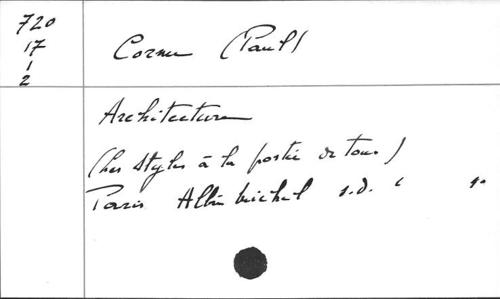 720
17
1
2
Cornu (Paul)
Architecture
(Les styles à la portée de tous)
Paris Albin Michel s.d.